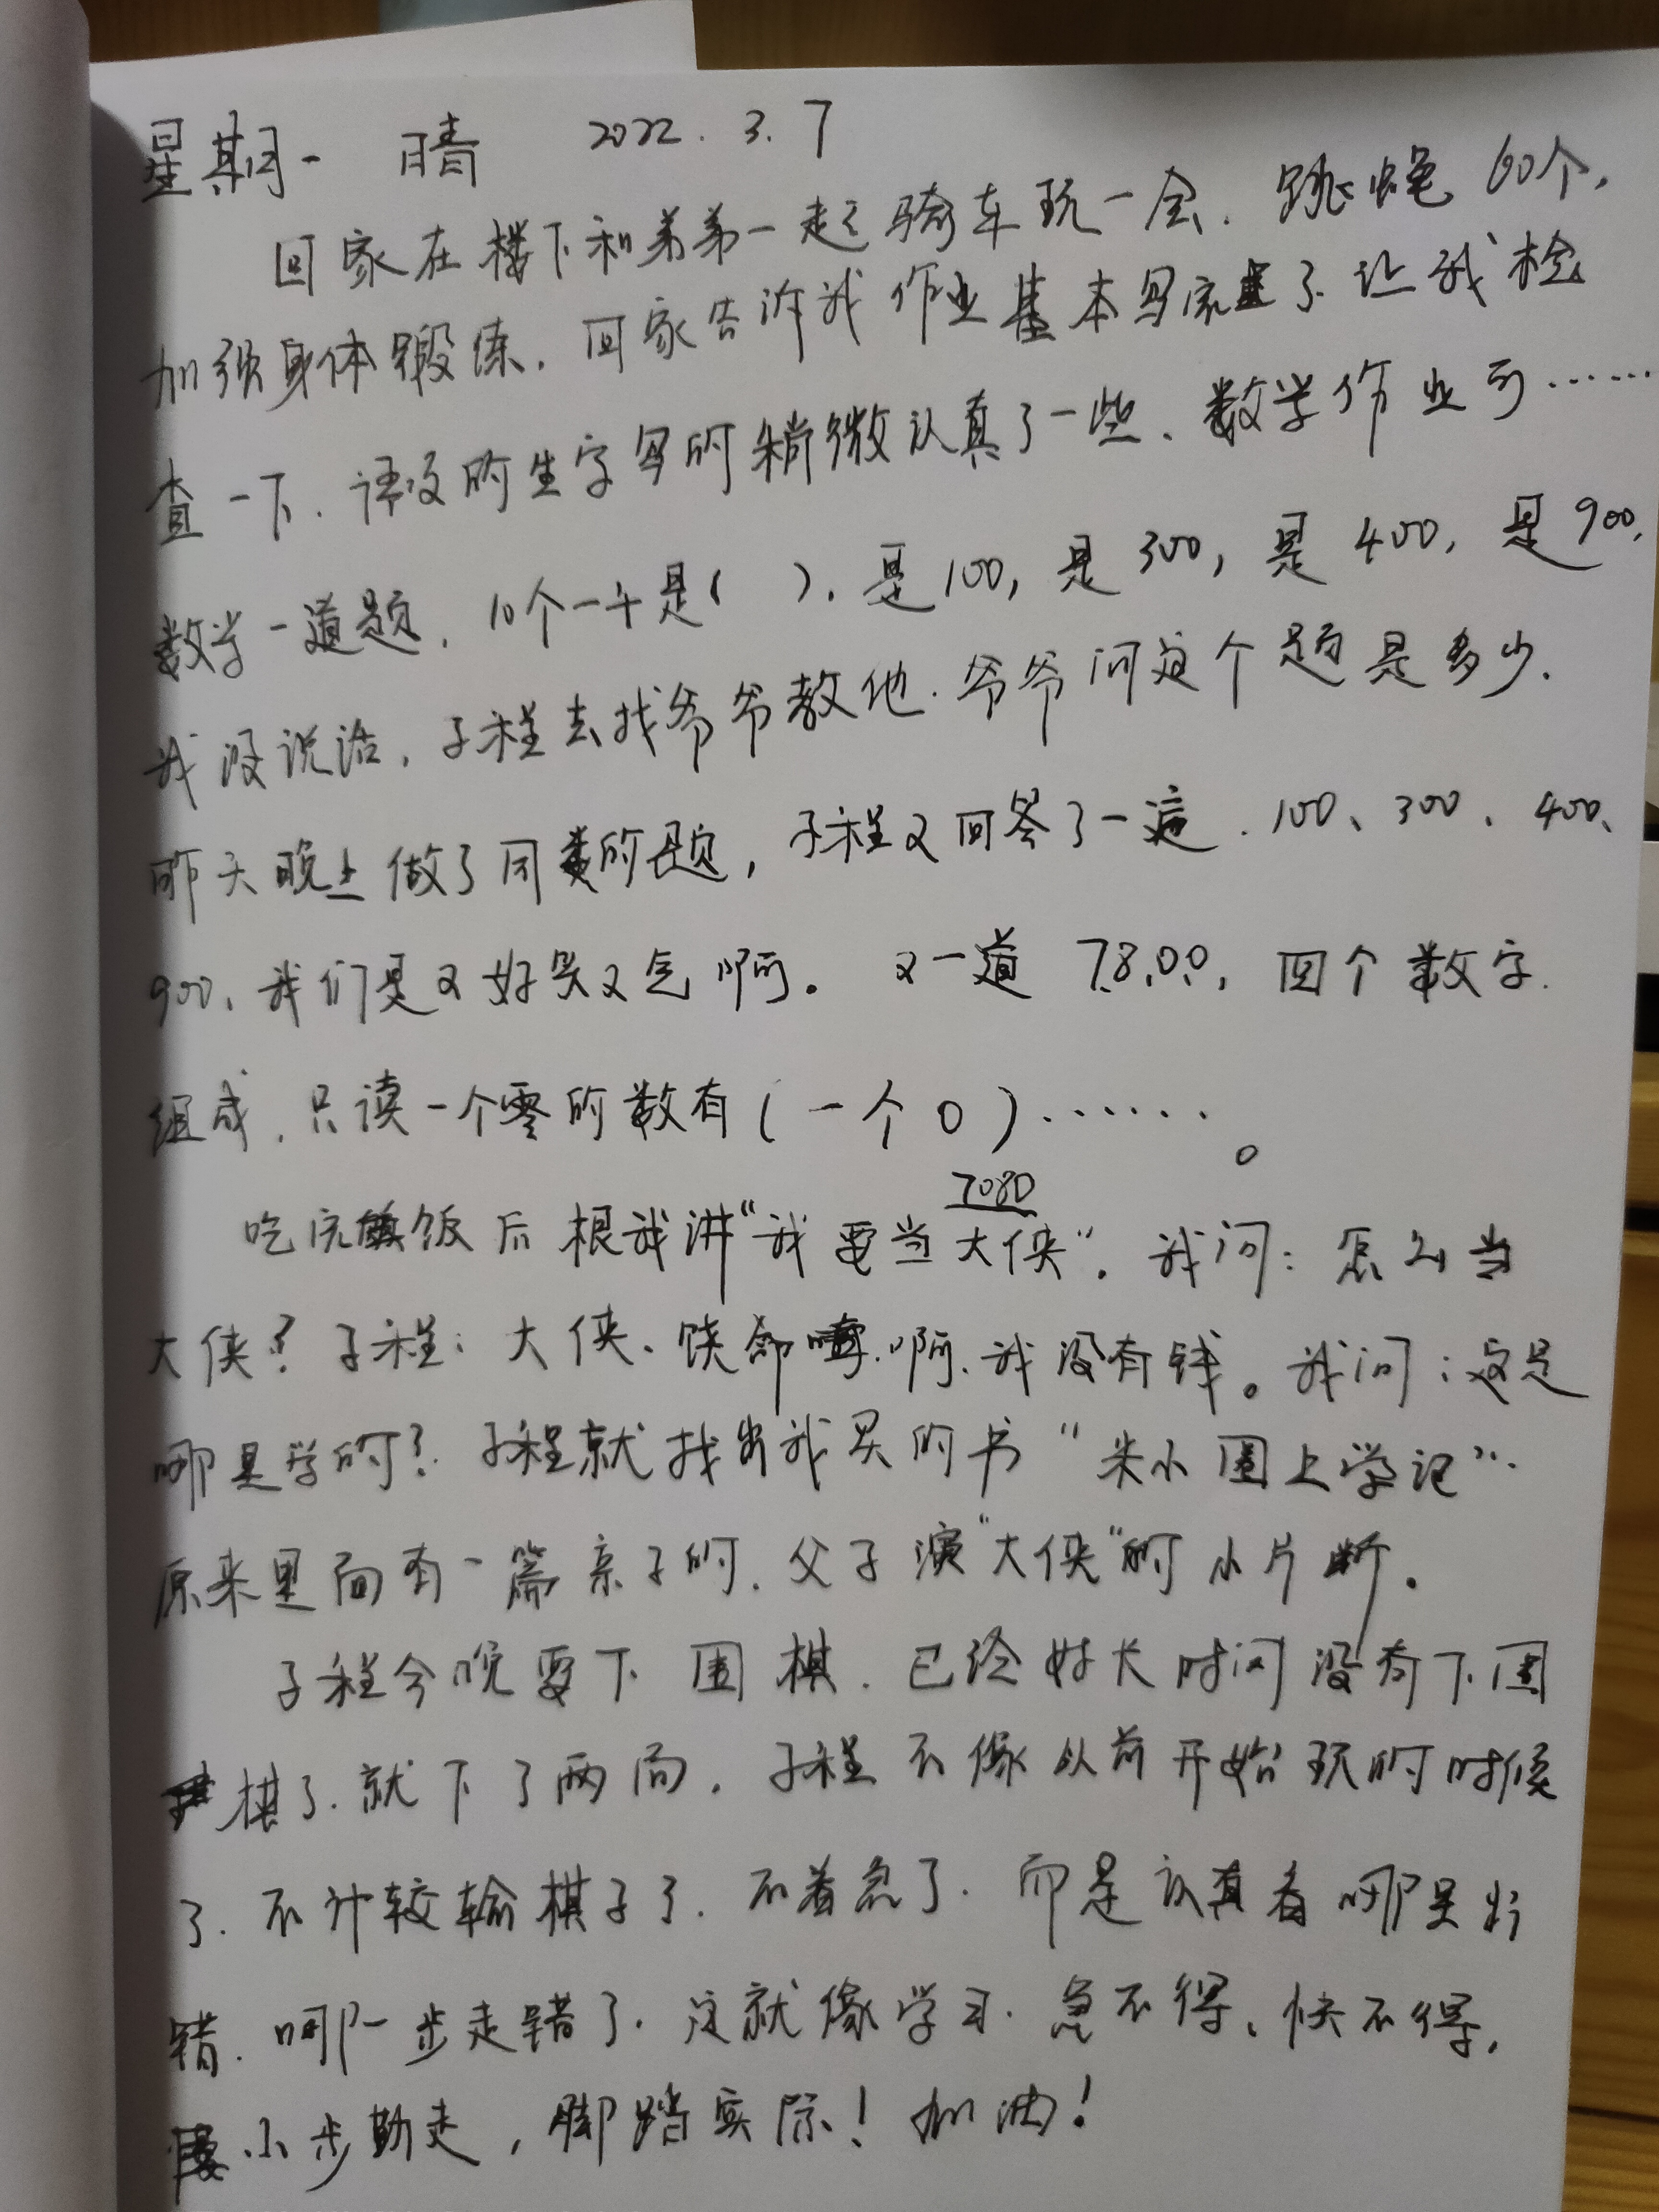 星期一 晴 2022.3.7
回家在楼下和弟弟一起骑车玩一会.跳绳60个.
加强身体锻练.回家告诉我作业基本写完了.让我检
查一下.语文的生字写的稍微认真了一些、数学作业可……
数学一道题.10个一千是( ).是100,是300,是400,是900.
我没说话.子程去找爷爷教他.爷爷问这个题是多少.
昨天晚上做了同类的题,子程又回答了一遍.100、300、400、
900、我们是又好笑又气啊。又一道 7.8.0.0,四个数字.
组成.只读一个零的数有(一个0)……。
7080
吃完饭后根我讲“我要当大侠”.我问:怎么当
大侠?子程:大侠、饶命啊.我没有钱。我问:这是
哪里学的?子程就找出我买的书“米小圈上学记”..
原来里面有一篇亲子的.父子演“大侠”的小片断.
子程今晚要下围棋.已经好长时间没有下围
棋了.就下了两局.子程不像以前开始玩的时候
了.不计较输棋子了.不着急了.而是认真看哪里出
错.哪一步走错了.这就像学习.急不得、快不得,
小步勤走,脚踏实际!加油!